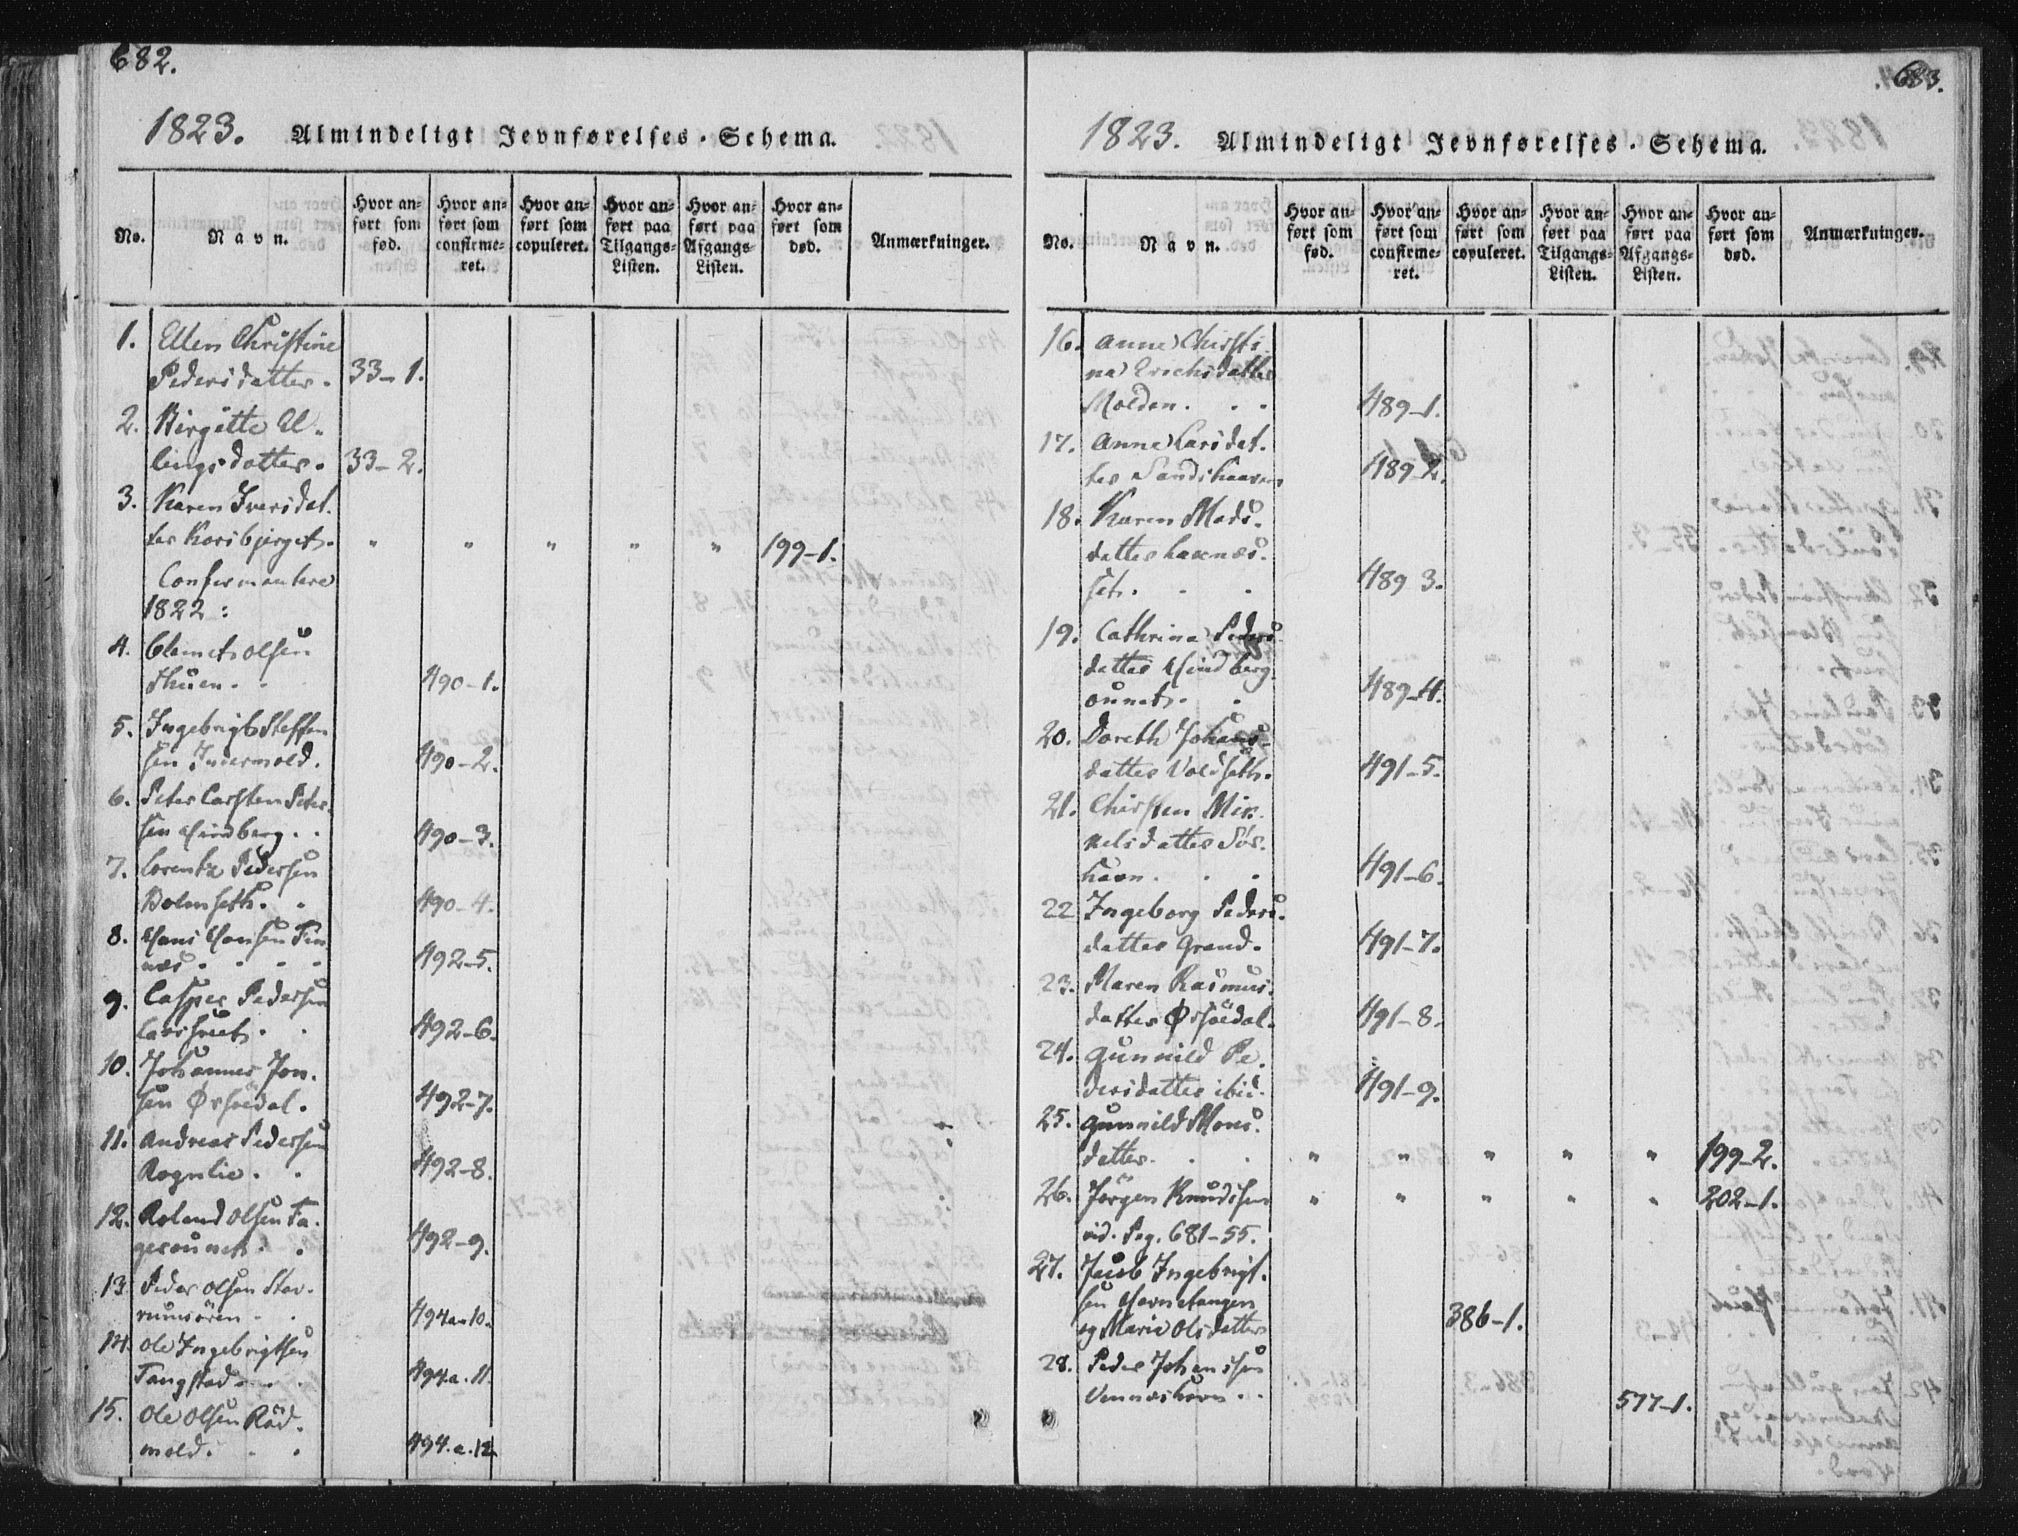 682.
1823. Almindeligt Jevnførelses-Schema.
No.
Navn.
Hvor anført som fød.
Hvor anført som confirmeret.
Hvor anført som copuleret.
Hvor anført paa Tilgangs-Listen.
Hvor anført paa Afgangs-Listen.
Hvor anført som død.
Anmærkninger.
1. Ellen Christine
Pedersdatter. 33-1.
2. Birgitte El-
lingsdatter. 33-2.
3. Karen Iversdat-
ter Korsbjerget. " " " " " 199-1.
Confirmantere
1822:
4. Clemet Olsen
Thuen. 490-1.
5. Ingebrigt Steffen
sen Indermold. 490-2.
6. Peter Carsten Peter-
sen Hindberg. 490-3.
7. Lorentz Pedersen
Bolmseth. 490-4.
8. Hans Hansen Fin-
næs. 492-5.
9. Casper Pedersen
492-6.
10. Johannes Jon-
sen Ørsøedal. 492-7.
11. Andreas Pedersen
Rognlie. 492-8.
12. Roland Olsen Fa-
gerounet. 492-9.
13. Peder Olsen Stav-
rumsören. 494a-10.
14. Ole Ingebrigtsen
Tangstad. 494.a.11.
15. Ole Olsen Röd-
mold. 494.a.12.
683.
1823. Almindeligt Jevnførelses-Schema.
No.
Navn.
Hvor anført som fød.
Hvor anført som confirmeret.
Hvor anført som copuleret.
Hvor anført paa Tilgangs-Listen.
Hvor anført paa Afgangs-Listen.
Hvor anført som død.
Anmærkninger.
16. Anne Christi-
na Erichsdatter
Molden. 489-1.
17. Anne Larsdat-
ter Sandshaavn 489-2.
18. Karen Mads-
datter Laxnæs-
set. 489-3.
19. Cathrina Peders-
datter Hindberg-
ounet. 489-4.
20. Doreth Johans-
datter Voldseth. 491-5.
21. Chirsten Mik-
kelsdatter Sör-
havn. 491-6.
22 Ingeborg Peders-
datter Grand. 491-7.
23. Maren Rasmus-
datter Ørsöedal. 491-8.
24. Gunnild Pe-
dersdatter ibid. 491-9.
25. Gunnild Mons-
datter. " " " " " 199-2.
26. Jörgen Knudsen " " " " " 202-1.
vid. Pag. 681-55.
27. Jacob Ingebrigt-
sen Havnetangen
og Marie Olsdatter 386-1.
28. Peder Johansen
Vennæshavn. 577-1.